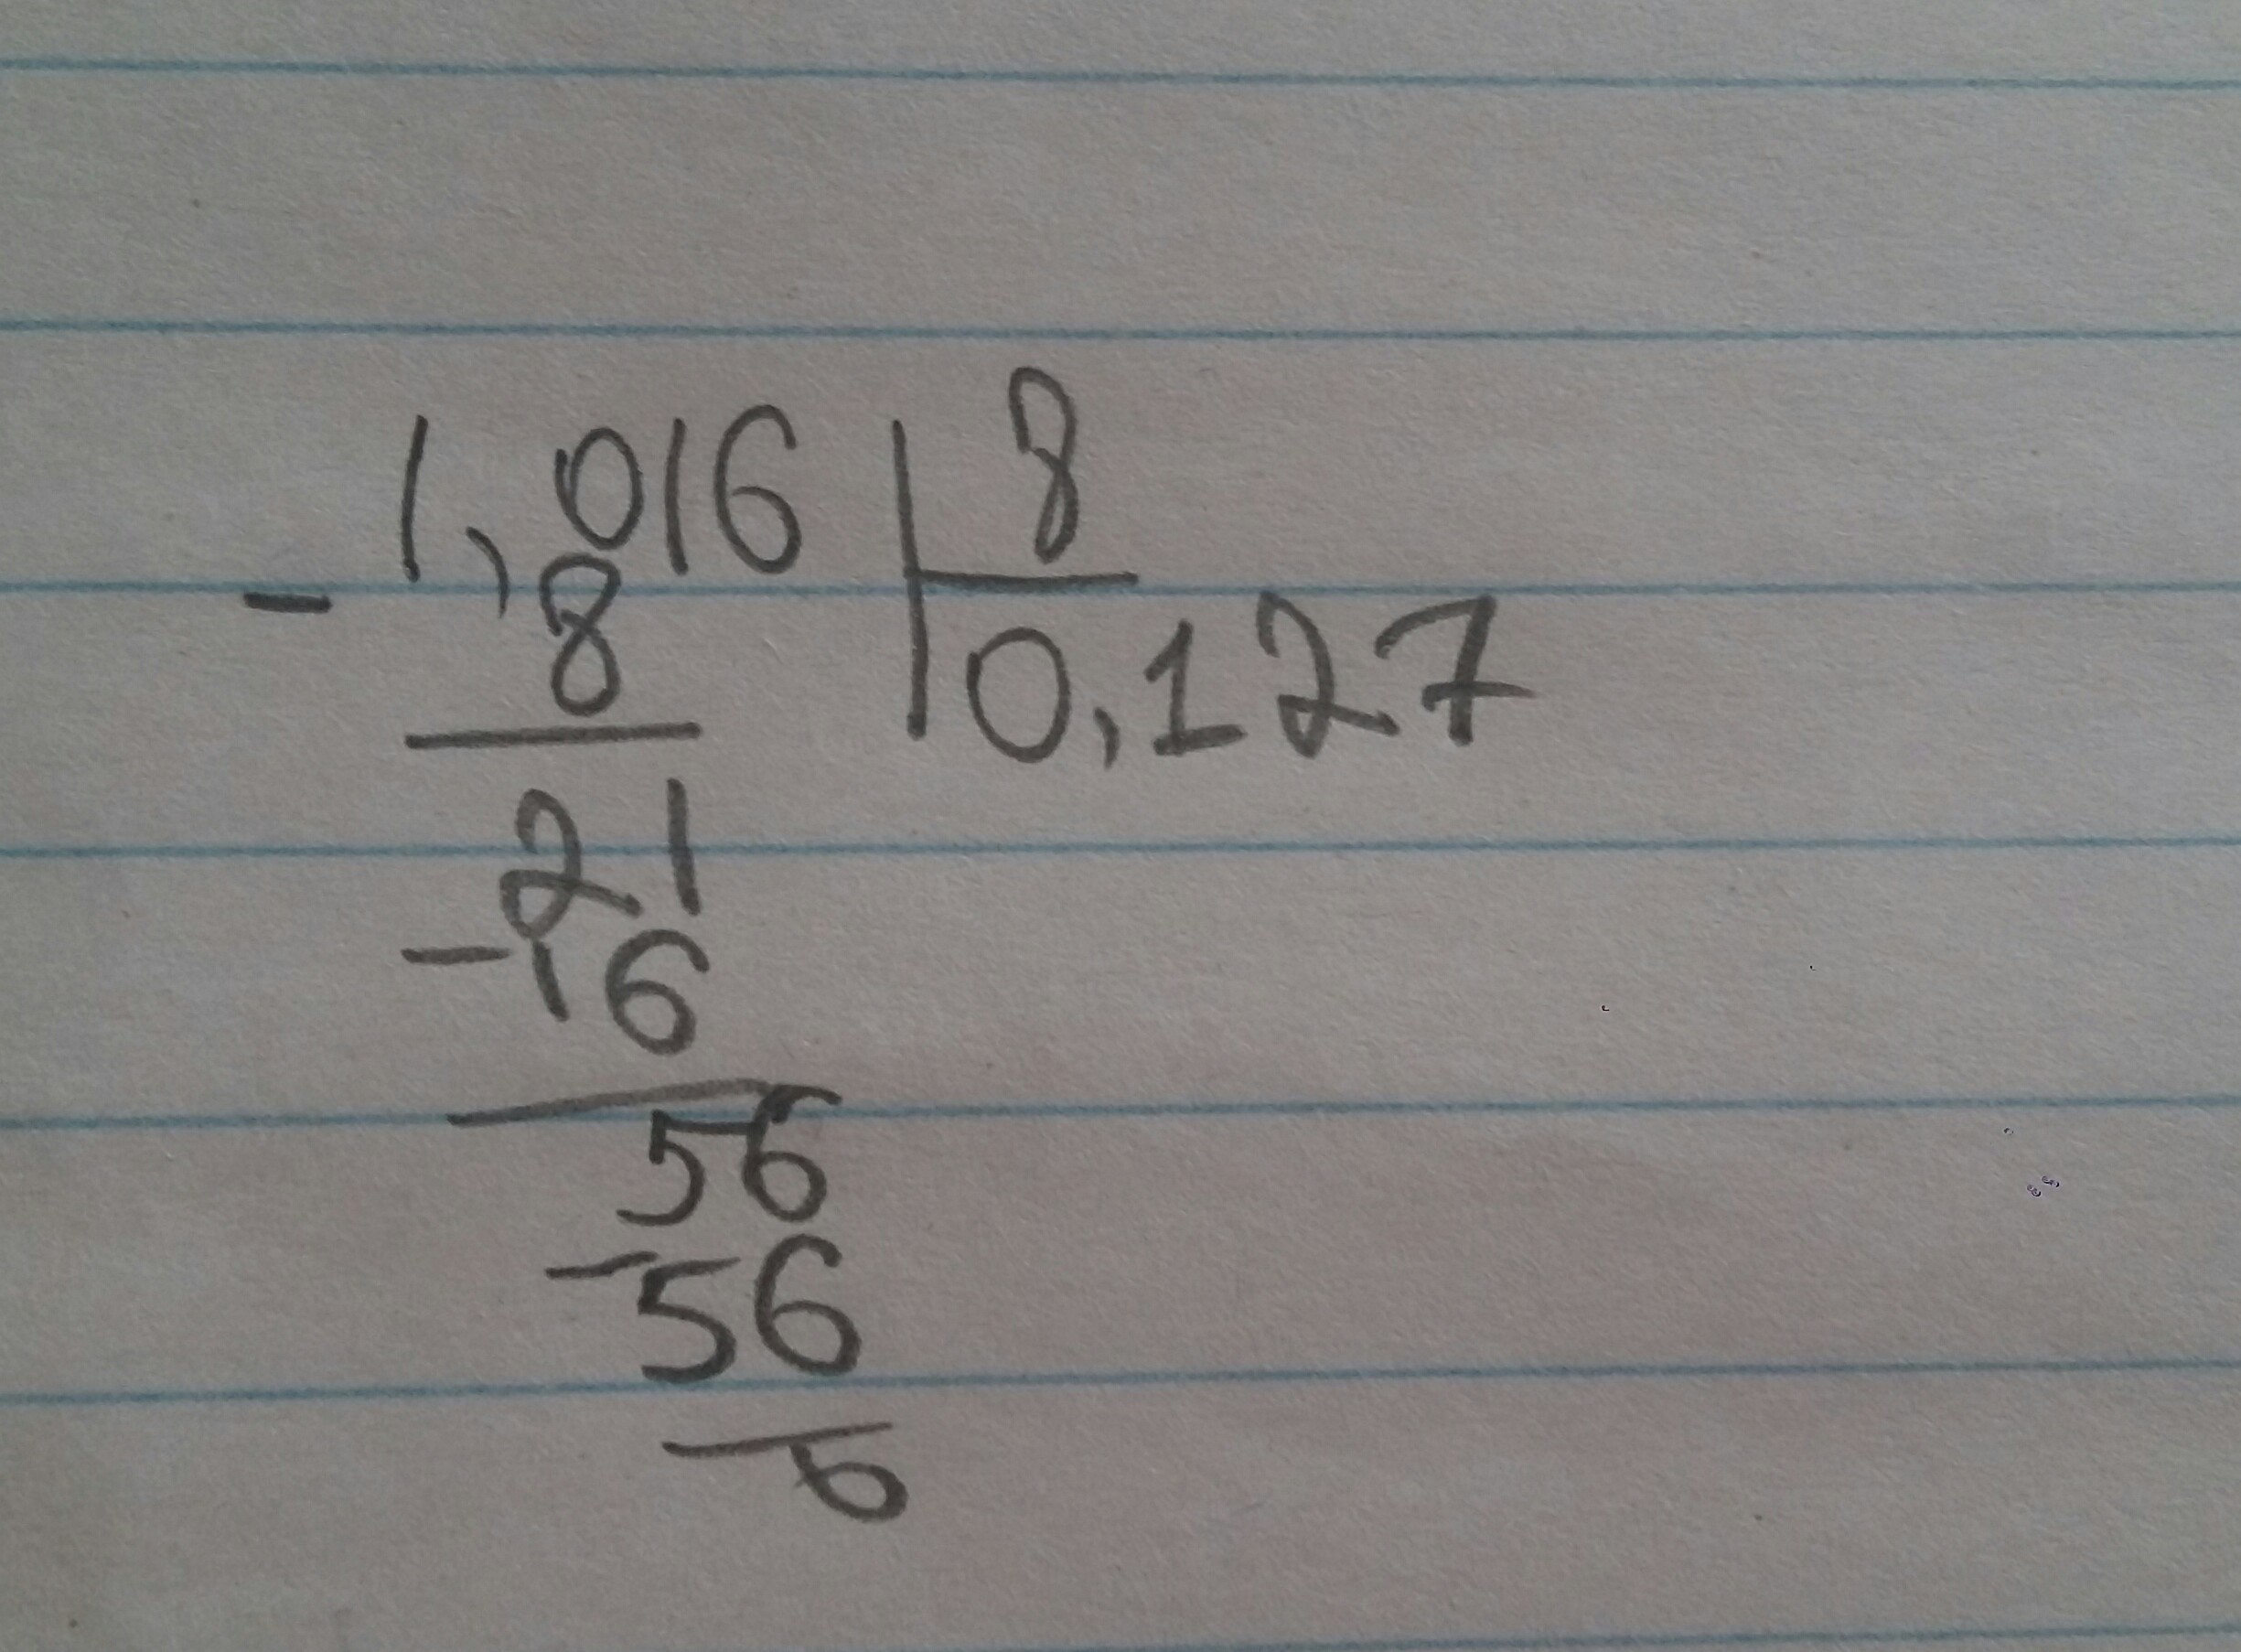 1,016 8
- 8 0,127
21
-16
56
-56
0